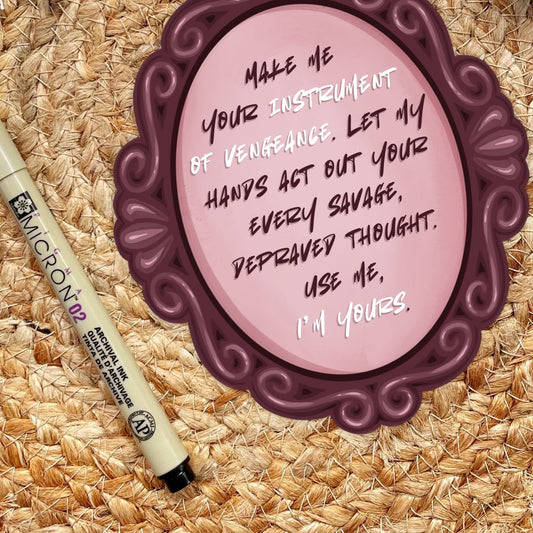 MAKE ME
YOUR INSTRUMENT
OF VENGEANCE. LET MY
HANDS ACT OUT YOUR
EVERY SAVAGE,
DEPRAVED THOUGHT.
USE ME,
I'M YOURS.
MICRON 02
ARCHIVAL INK
QUALITÉ D'ARCHIVAGE
TINTA DE ARCHIVE
AP